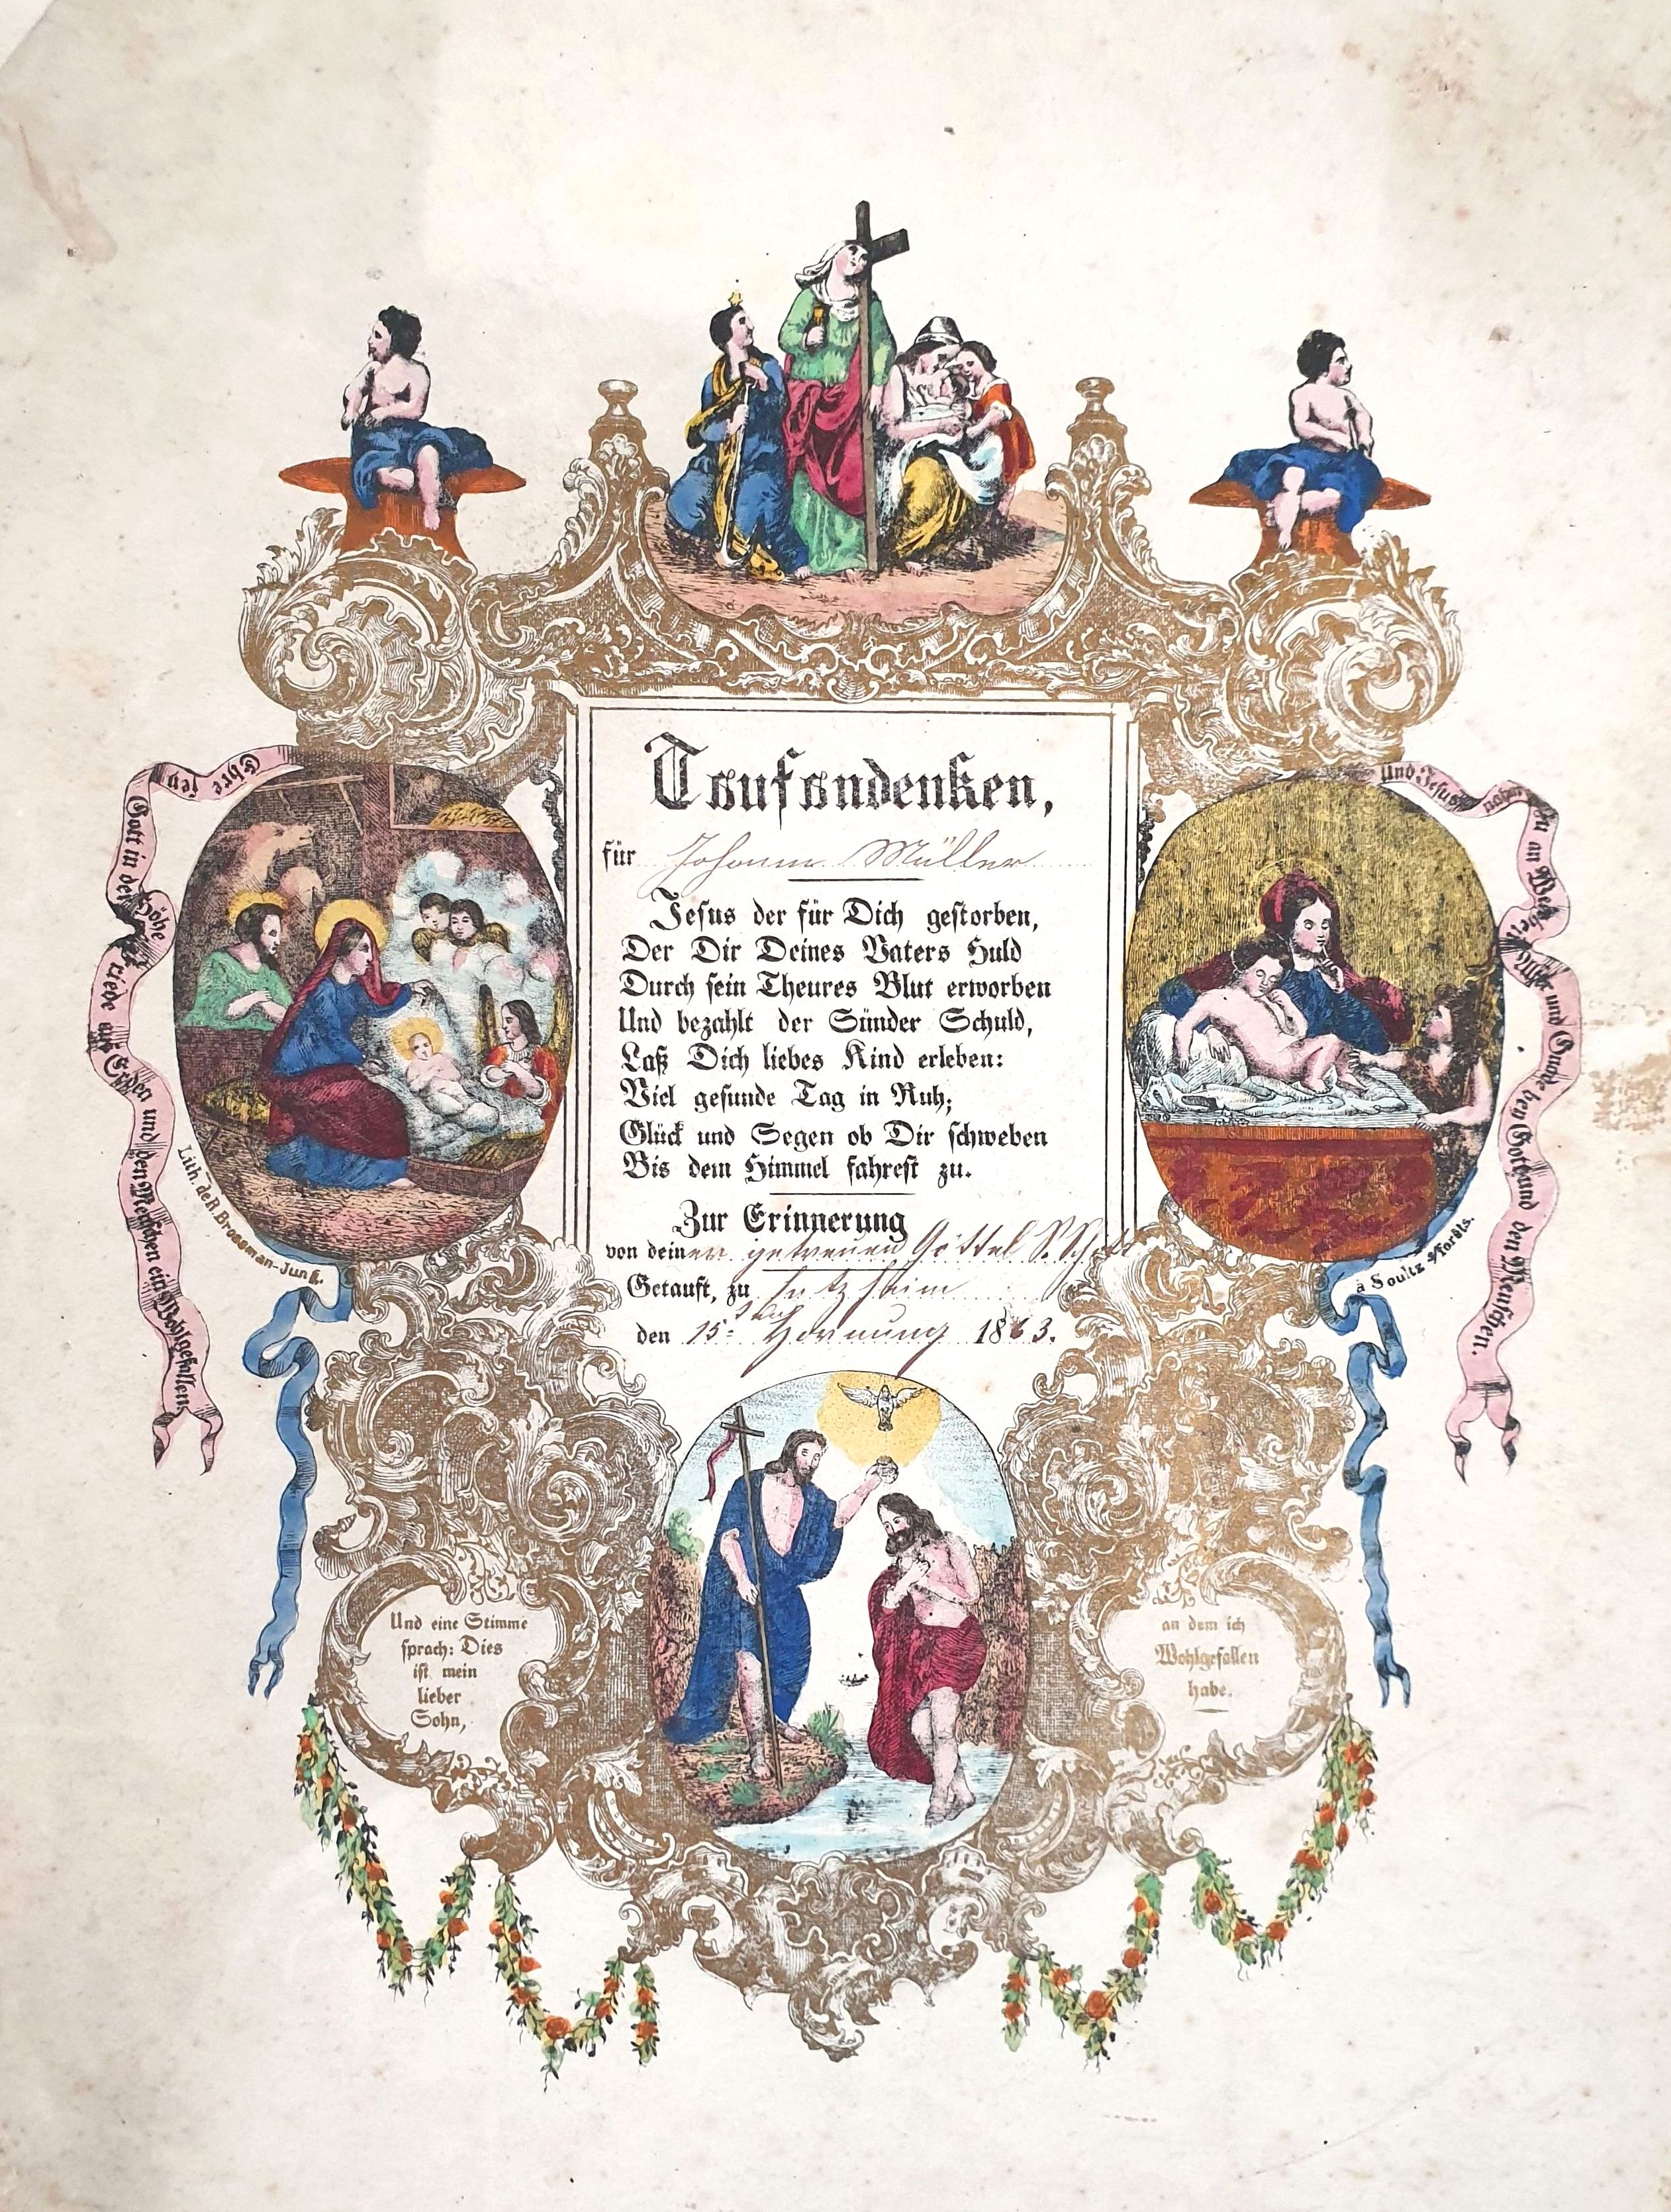 Taufandenken,
für Johann Müller
Jesus der für Dich gestorben,
Der Dir Deines Vaters Huld
Durch sein Theures Blut erworben
Und bezahlt der Sünder Schuld,
Laß Dich liebes Kind erleben:
Viel gesunde Tag in Ruh;
Glück und Segen ob Dir schweben
Bis dem Himmel fahrest zu.
Zur Erinnerung
von deiner getreuen Göttel S.
Getauft, zu
den 15= Hornung 1863.
Ehre sey Gott in der Höhe Friede auf Erden und den Menschen ein Wohlgefallen
Und Jesus nahm zu an Weisheit, Alter und Gnade bey Gott und den Menschen.
Lith. de R. Brossman-Junk.
à Soultz s/forêts.
Und eine Stimme
sprach: Dies
ist mein
lieber
Sohn,
an dem ich
Wohlgefallen
habe.